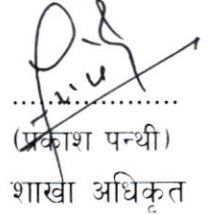 ....................
(प्रकाश पन्थी)
शाखा अधिकृत